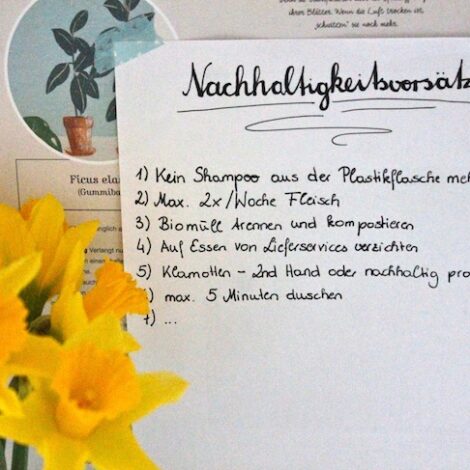 ihres Blätter. Wenn die Luft trocken ist,
sie noch mehr.
Nachhaltigkeitsvorsätz
1) Kein Shampoo aus der Plastikflasche meh
2) Max. 2x/Woche Fleisch
3) Biomüll trennen und kompostieren
4) Auf Essen von Lieferservices verzichten
5) Klamotten - 2nd Hand oder nachhaltig pro
) max. 5 Minuten duschen
7) ...
Ficus ela
(Gummiba